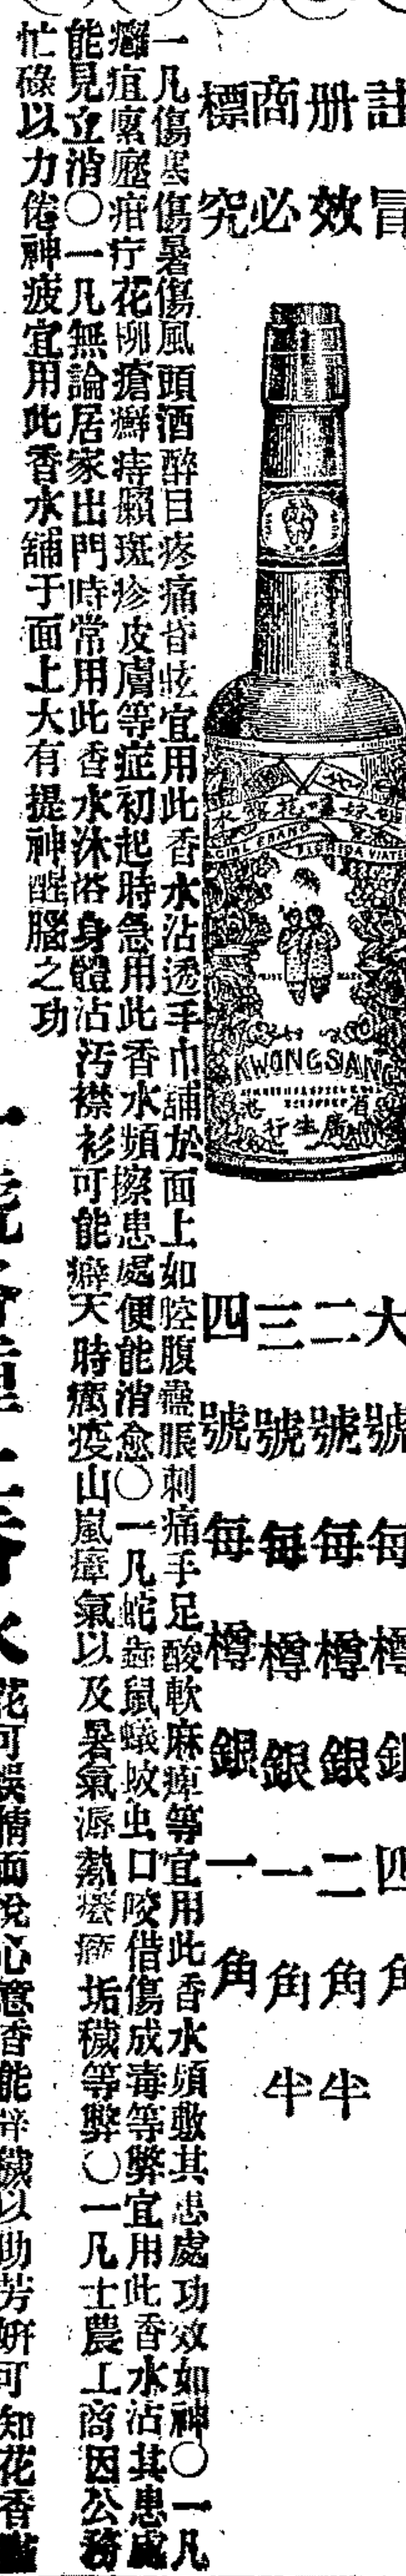 註冊商標
冒效必究
GIRL BRAND
FLORIDA WATER
KWONG SANG
行生廣
大號每樽銀四角
二號每樽銀二角半
三號每樽銀一角半
四號每樽銀一角
一凡傷寒傷暑傷風頭酒醉目疼痛昏眩宜用此香水沾透手巾舖於面上如腔腹 脹刺痛手足酸軟麻痺等宜用此香水頻敷其患處功效如神〇一凡
癰疽瘰癧疳疔花柳瘡癬痔癩斑疹皮膚等症初起時急用此香水頻擦患處便能消愈〇一凡蛇 鼠蟻蚊虫口咬借傷成毒等弊宜用此香水沾其患處
能見立消〇一凡無論居家出門時常用此香水沐浴身體沾汚襟衫可能癖天時癘疫山嵐瘴氣以及暑氣溽熱 垢穢等弊〇一凡士農工商因公務
忙碌以力倦神疲宜用此香水舖于面上大有提神醒腦之功
花可娛情面悅心意香能辟穢以助芳妍可知花香